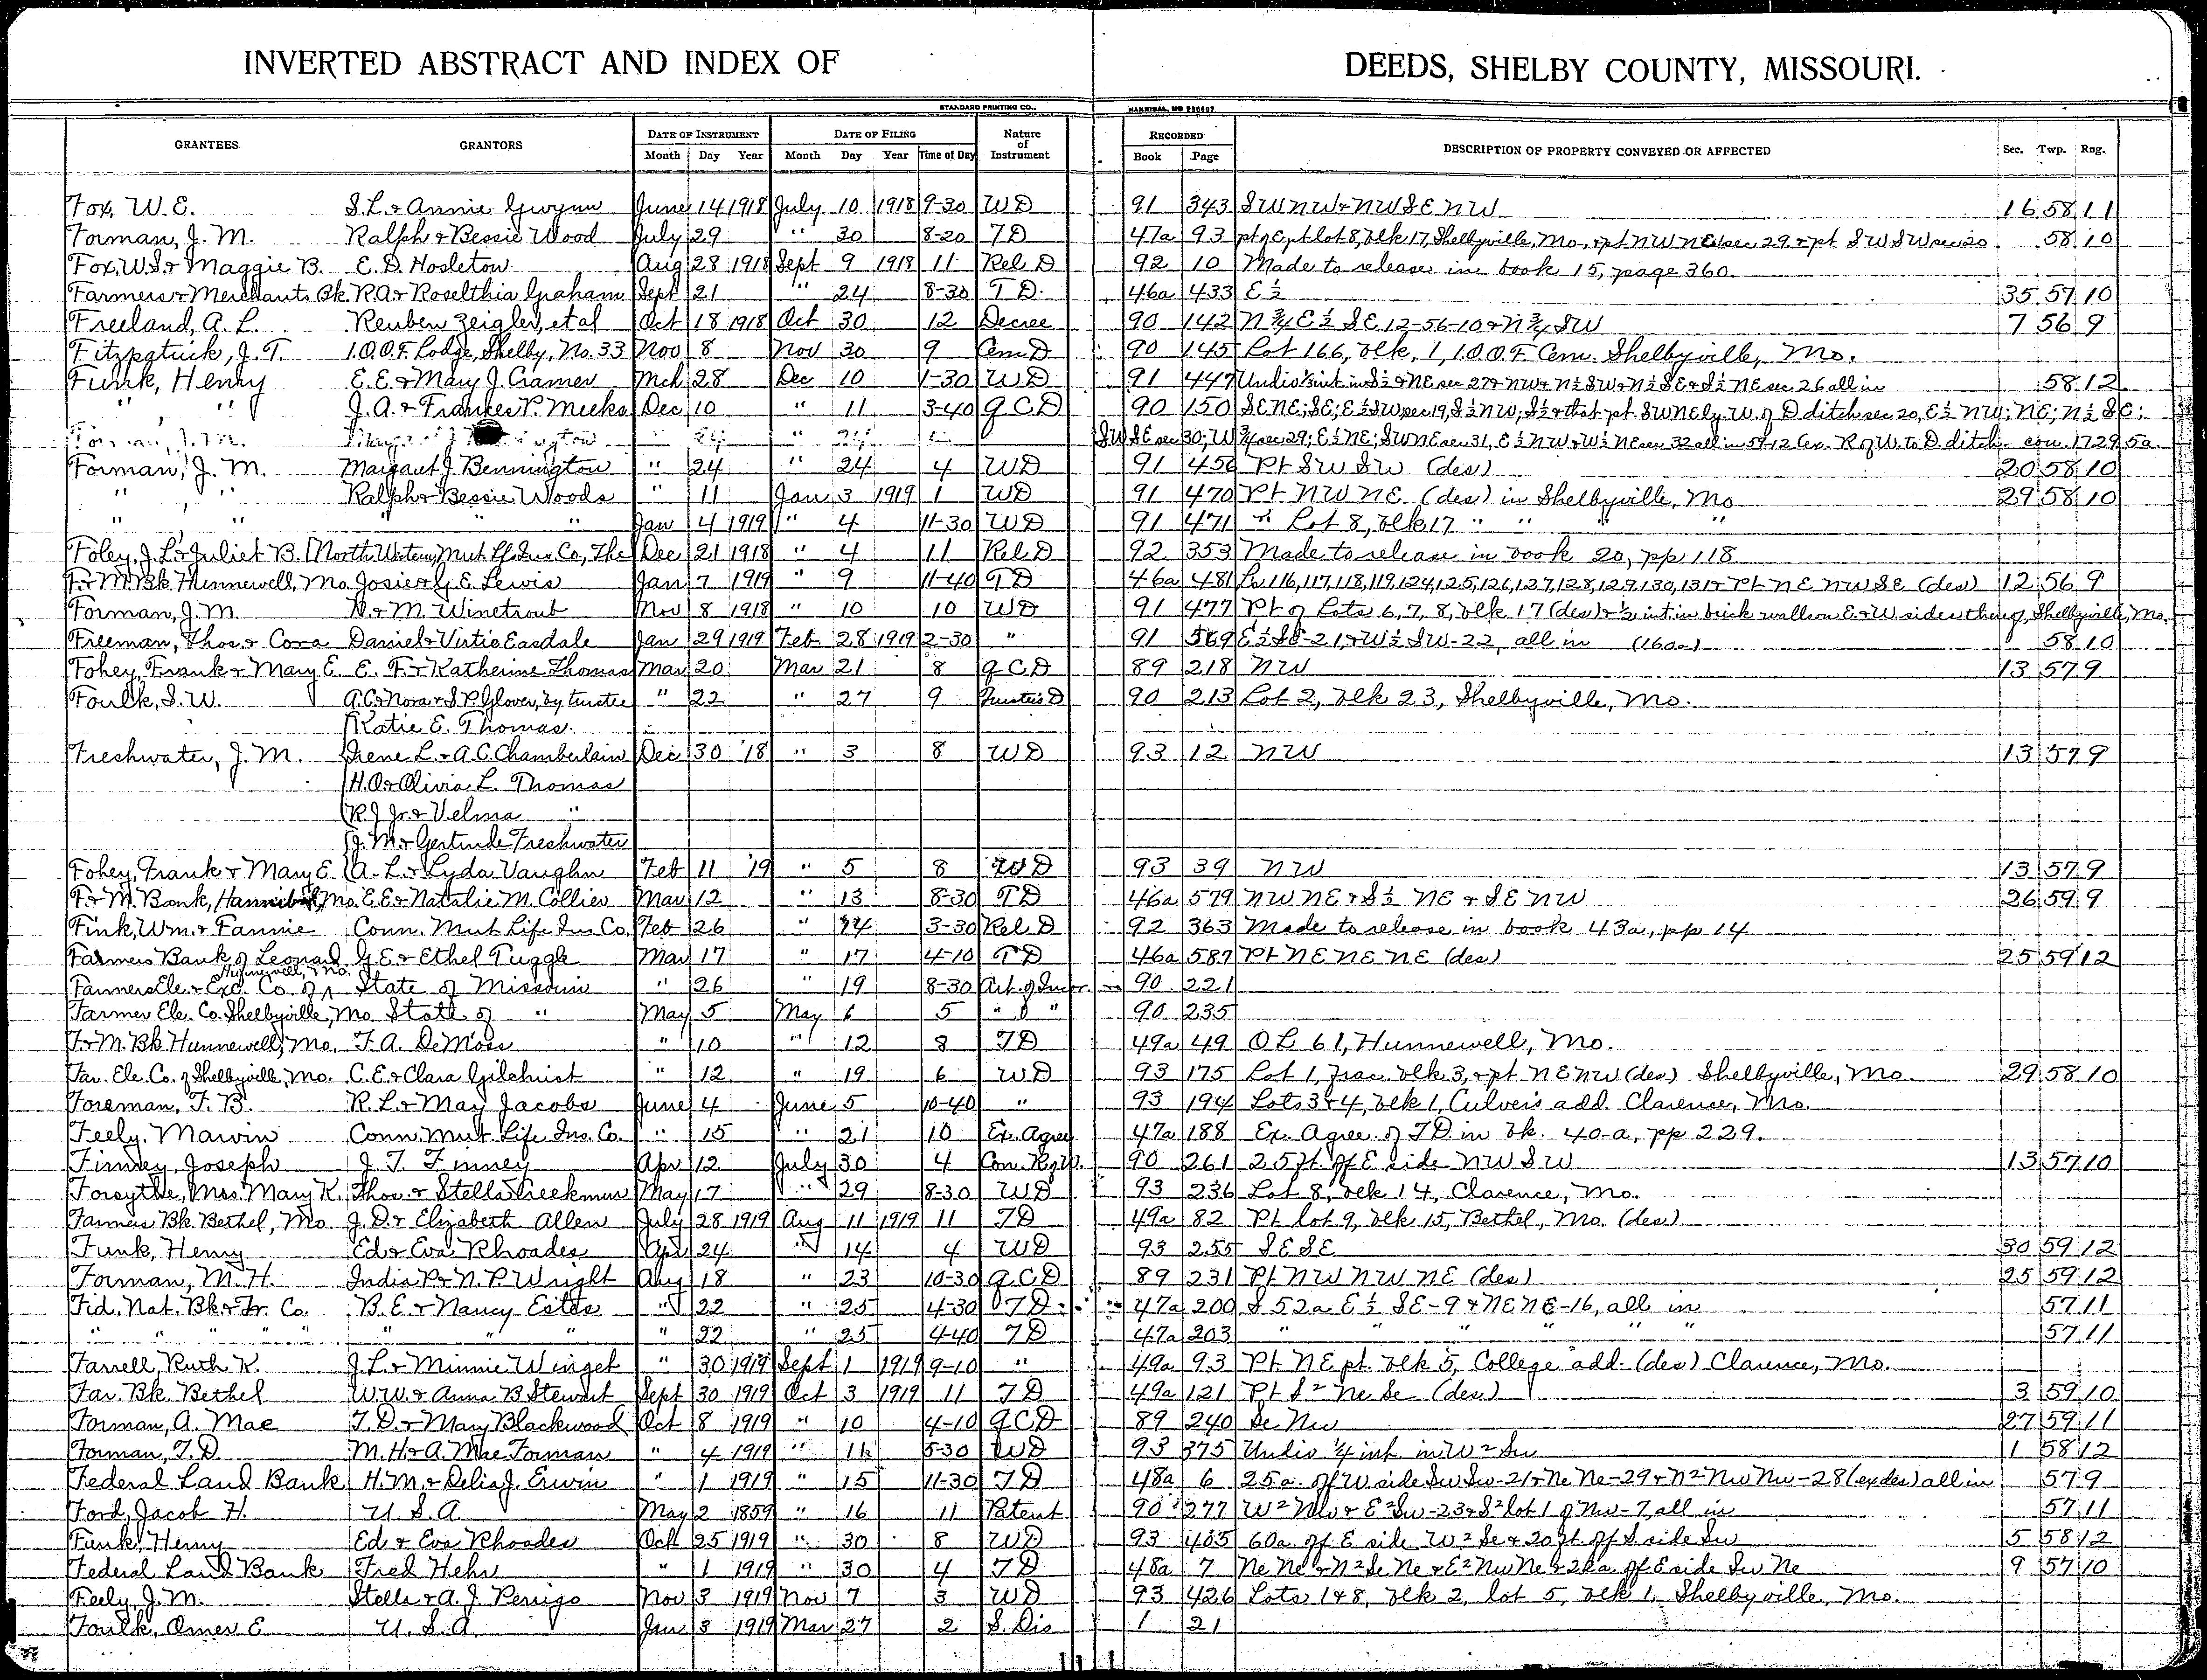 INVERTED ABSTRACT AND INDEX OF DEEDS, SHELBY COUNTY, MISSOURI.
STANDARD PRINTING CO., HANNIBAL, MO
GRANTEES GRANTORS DATE OF INSTRUMENT DATE OF FILING Nature of Instrument RECORDED DESCRIPTION OF PROPERTY CONVEYED OR AFFECTED Sec. Twp. Rng.
Month Day Year Month Day Year Time of Day Book Page
Fox, W. E. S. L. & Annie Gwynn June 14 1918 July 10 1918 9-30 WD 91 343 SW NW & NW SE NW 16 58 11
Forman, J. M. Ralph & Bessie Wood July 29 " 30 8-20 TD 47a 93 pt of E pt lot 8, blk 17, Shelbyville, Mo., & pt NW NE sec 29 & pt SW SW sec 20 58 10
Fox, W S & Maggie B. E. D. Hosleton Aug 28 1918 Sept 9 1918 11 Rel D 92 10 Made to release in book 15, page 360.
Farmers & Merchants Bk. R. A. & Roselthia Graham Sept 21 " 24 8-30 T D. 46a 433 E ½ 35 57 10
Freeland, A. L. Reuben Zeigler, et al Oct 18 1918 Oct 30 12 Decree 90 142 N ¾ E ½ SE 12-56-10 & N ¾ SW 7 56 9
Fitzpatrick, J. T. I.O.O.F. Lodge, Shelby, No. 33 Nov 8 Nov 30 9 Cem D 90 145 Lot 166, blk, 1, I.O.O.F Cem. Shelbyville, Mo.
Funk, Henry E. E. & Mary J. Cramer Mch 28 Dec 10 1-30 WD 91 447 Undiv ½ int in S½ & NE sec 27 & NW & N½ SW & N½ SE & S½ NE sec 26 all in 58 12
" " J. A. & Frankes P. Meeks Dec 10 " 11 3-40 Q C D 90 150 SE NE; SE; E½ SW sec 19, S½ NW; S½ & that pt SW NE ly. W. of D ditch sec 20, E½ NW; NE; N½ SE;
Forman, J. M. 24 " 24 SW SE sec 30; W ¾ sec 29; E½ NE; SW NE sec 31, E½ NW & W½ NE sec 32 all in 59-12 Ex. R of W. to D. ditch. con. 1729.5a.
Forman, J. M. Margaret J. Bennington " 24 " 24 4 WD 91 456 Pt SW SW (des) 20 58 10
" " Ralph & Bessie Woods " 11 Jan 3 1919 1 WD 91 470 Pt NW NE (des) in Shelbyville, Mo 29 58 10
" " " " " Jan 4 1919 " 4 11-30 WD 91 471 " Lot 8, blk 17 " " " "
Foley, J. L. & Juliet B. North Western Mut Lf. Ins Co, The Dec 21 1918 " 4 11 Rel D 92 353 Made to release in book 20, pp 118
F. & M. Bk Hunnewell, Mo. Josie & G. E. Lewis Jan 7 1919 " 9 11-40 TD 46a 481 Ls 116, 117, 118, 119, 124, 125, 126, 127, 128, 129, 130, 131 & Pt NE NW SE (des) 12 56 9
Forman, J. M. N. & M. Winetroub Nov 8 1918 " 10 10 WD 91 477 Pt of Lots 6, 7, 8, blk 17 (des) & ½ int in brick wall on E. & W. sides thereof, Shelbyville, Mo.
Freeman, Thos. & Cora Daniel & Virtie Easdale Jan 29 1919 Feb 28 1919 2-30 " 91 569 E½ SE-21, & W½ SW-22, all in (160a) 58 10
Fohey, Frank & Mary E. E. F. & Katherine Thomas Mar 20 Mar 21 8 Q C D 89 218 NW 13 57 9
Foulk, S. W. A. C. & Nora & S. P. Glover, by trustee " 22 " 27 9 Trustee's D 90 213 Lot 2, blk 23, Shelbyville, Mo.
Katie E. Thomas.
Freshwater, J. M. Irene L. & A. C. Chamberlain Dec 30 '18 " 3 8 WD 93 12 NW 13 57 9
H. O. & Olivia L. Thomas
R. J. Jr. & Velma "
J. M. & Gertrude Freshwater
Fohey, Frank & Mary E A. L. & Lyda Vaughn Feb 11 '19 " 5 8 WD 93 39 NW 13 57 9
F. & M. Bank, Hannibal, Mo. E. E. & Natalie M. Collier Mar 12 " 13 8-30 TD 46a 579 NW NE & S½ NE & SE NW 26 59 9
Fink, Wm. & Fannie Conn. Mut Life Ins Co. Feb 26 " 14 3-30 Rel D 92 363 Made to release in book 43a, pp 14
Farmers Bank of Leonard G. E. & Ethel Tuggle Mar 17 " 17 4-10 TD 46a 587 Pt NE NE NE (des) 25 59 12
Hunnewell, Mo.
Farmers Ele. & Exc. Co. of ^ State of Missouri " 26 " 19 8-30 Art. of Incor. 90 221
Farmer Ele. Co. Shelbyville, Mo. State of " May 5 May 6 5 " " " 90 235
F. & M. Bk. Hunnewell, Mo. F. A. DeMoss " 10 " 12 8 TD 49a 49 OL 61, Hunnewell, Mo.
Far. Ele. Co. of Shelbyville, Mo. C. E. & Clara Gilchrist " 12 " 19 6 WD 93 175 Lot 1, frac. blk 3, & pt NE NW (des) Shelbyville, Mo 29 58 10
Foreman, F. B. R. L. & May Jacobs June 4 June 5 10-40 " 93 194 Lots 3 & 4, blk 1, Culver's add. Clarence, Mo.
Feely, Marvin Conn. Mut. Life Ins. Co. " 15 " 21 10 Ex. Agree 47a 188 Ex. Agree. of TD in bk. 40-a, pp 229.
Finney, Joseph J. T. Finney Apr 12 July 30 4 Con. R of W. 90 261 25 ft. off E side NW SW 13 57 10
Forsythe, Mrs. Mary K. Thos. & Stella Creekmur May 17 " 29 8-30 WD 93 236 Lot 8, blk 14, Clarence, Mo.
Farmers Bk. Bethel, Mo J. D. & Elizabeth Allen July 28 1919 Aug 11 1919 11 TD 49a 82 Pt lot 9, blk 15, Bethel, Mo. (des)
Funk, Henry Ed & Eva Rhoades Apr 24 " 14 4 WD 93 255 SE SE 30 59 12
Forman, M. H. India P. & N. P. Wright Aug 18 " 23 10-30 Q C D 89 231 Pt NW NW NE (des) 25 59 12
Fid. Nat. Bk & Tr. Co. B. E. & Nancy Estes " 22 " 25 4-30 TD 47a 200 S 52a E½ SE-9 & NE NE-16, all in 57 11
" " " " " " " " " 22 " 25 4-40 TD 47a 203 " " " " " 57 11
Farrell, Ruth K. J. L. & Minnie Winget " 30 1919 Sept 1 1919 9-10 " 49a 93 Pt NE pt. blk 5, College add. (des) Clarence, Mo.
Far. Bk. Bethel W. W. & Anna B Stewart Sept 30 1919 Oct 3 1919 11 TD 49a 121 Pt S² Ne Se (des) 3 59 10
Forman, A. Mae T. D. & Mary Blackwood Oct 8 1919 " 10 4-10 Q C D 89 240 Se Nw 27 59 11
Forman, T. D. M. H. & A. Mae Forman " 4 1919 " 11 5-30 WD 93 375 Undiv ¼ int in W² Sw 1 58 12
Federal Land Bank H. M. & Delia J. Erwin " 1 1919 " 15 11-30 TD 48a 6 25a. off W side Sw Sw-21 & Ne Ne-29 & N² Nw Nw-28 (ex des) all in 57 9
Ford, Jacob H. U. S. A May 2 1859 " 16 11 Patent 90 277 W² Nw & E² Sw-23 & S² lot 1 of Nw-7, all in 57 11
Funk, Henry Ed & Eva Rhoades Oct 25 1919 " 30 8 WD 93 405 60a. off E side W² Se & 20 ft. off S side Sw 5 58 12
Federal Land Bank Fred Hehr " 1 1919 " 30 4 TD 48a 7 Ne Ne & N² Se Ne & E² Nw Ne & 26a. off E side Sw Ne 9 57 10
Feely, J. M. Stella & A. J. Perrigo Nov 3 1919 Nov 7 3 WD 93 426 Lots 1 & 8, blk 2, lot 5, blk 1, Shelbyville, Mo.
Foulk, Omer E U. S. A. Jan 3 1919 Mar 27 2 S. Dis 1 21